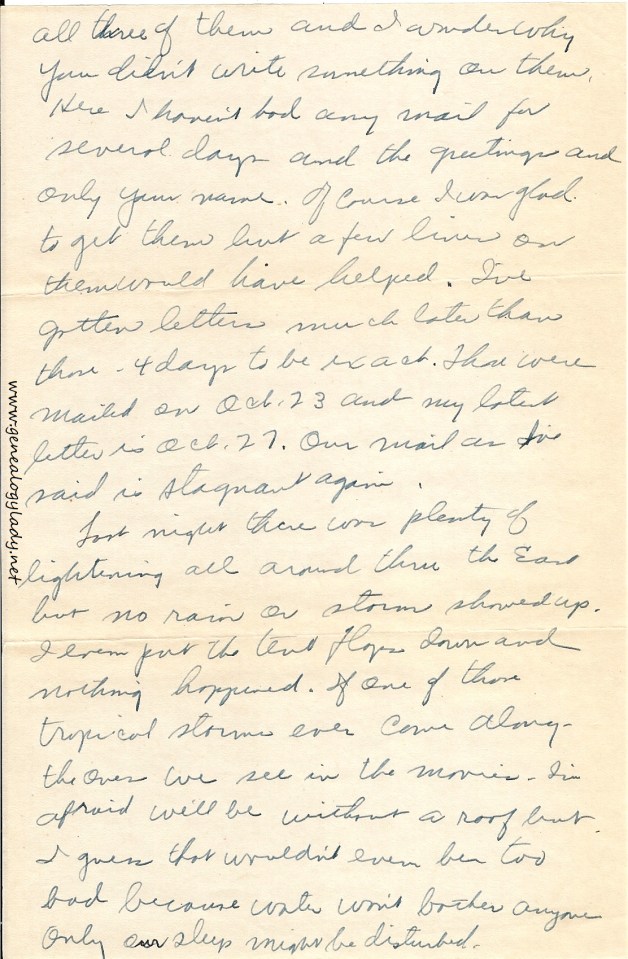 all three of them and I wonder why
you didn't write something on them.
Here I haven't had any mail for
several days and the greetings and
only your name. Of course I was glad
to get them but a few lines on
them would have helped. I've
gotten letters much later than
those - 4 days to be exact. Those were
mailed on Oct. 23 and my latest
letter is Oct. 27. Our mail as I've
said is stagnant again.
Last night there was plenty of
lightening all around thru the East
but no rain or storm showed up.
I even put the tent flaps down and
nothing happened. If one of those
tropical storms ever come along-
the ones we see in the movies - I'm
afraid we'll be without a roof but
I guess that wouldn't even be too
bad because water won't bother anyone
only our sleep might be disturbed.
www.genealogylady.net